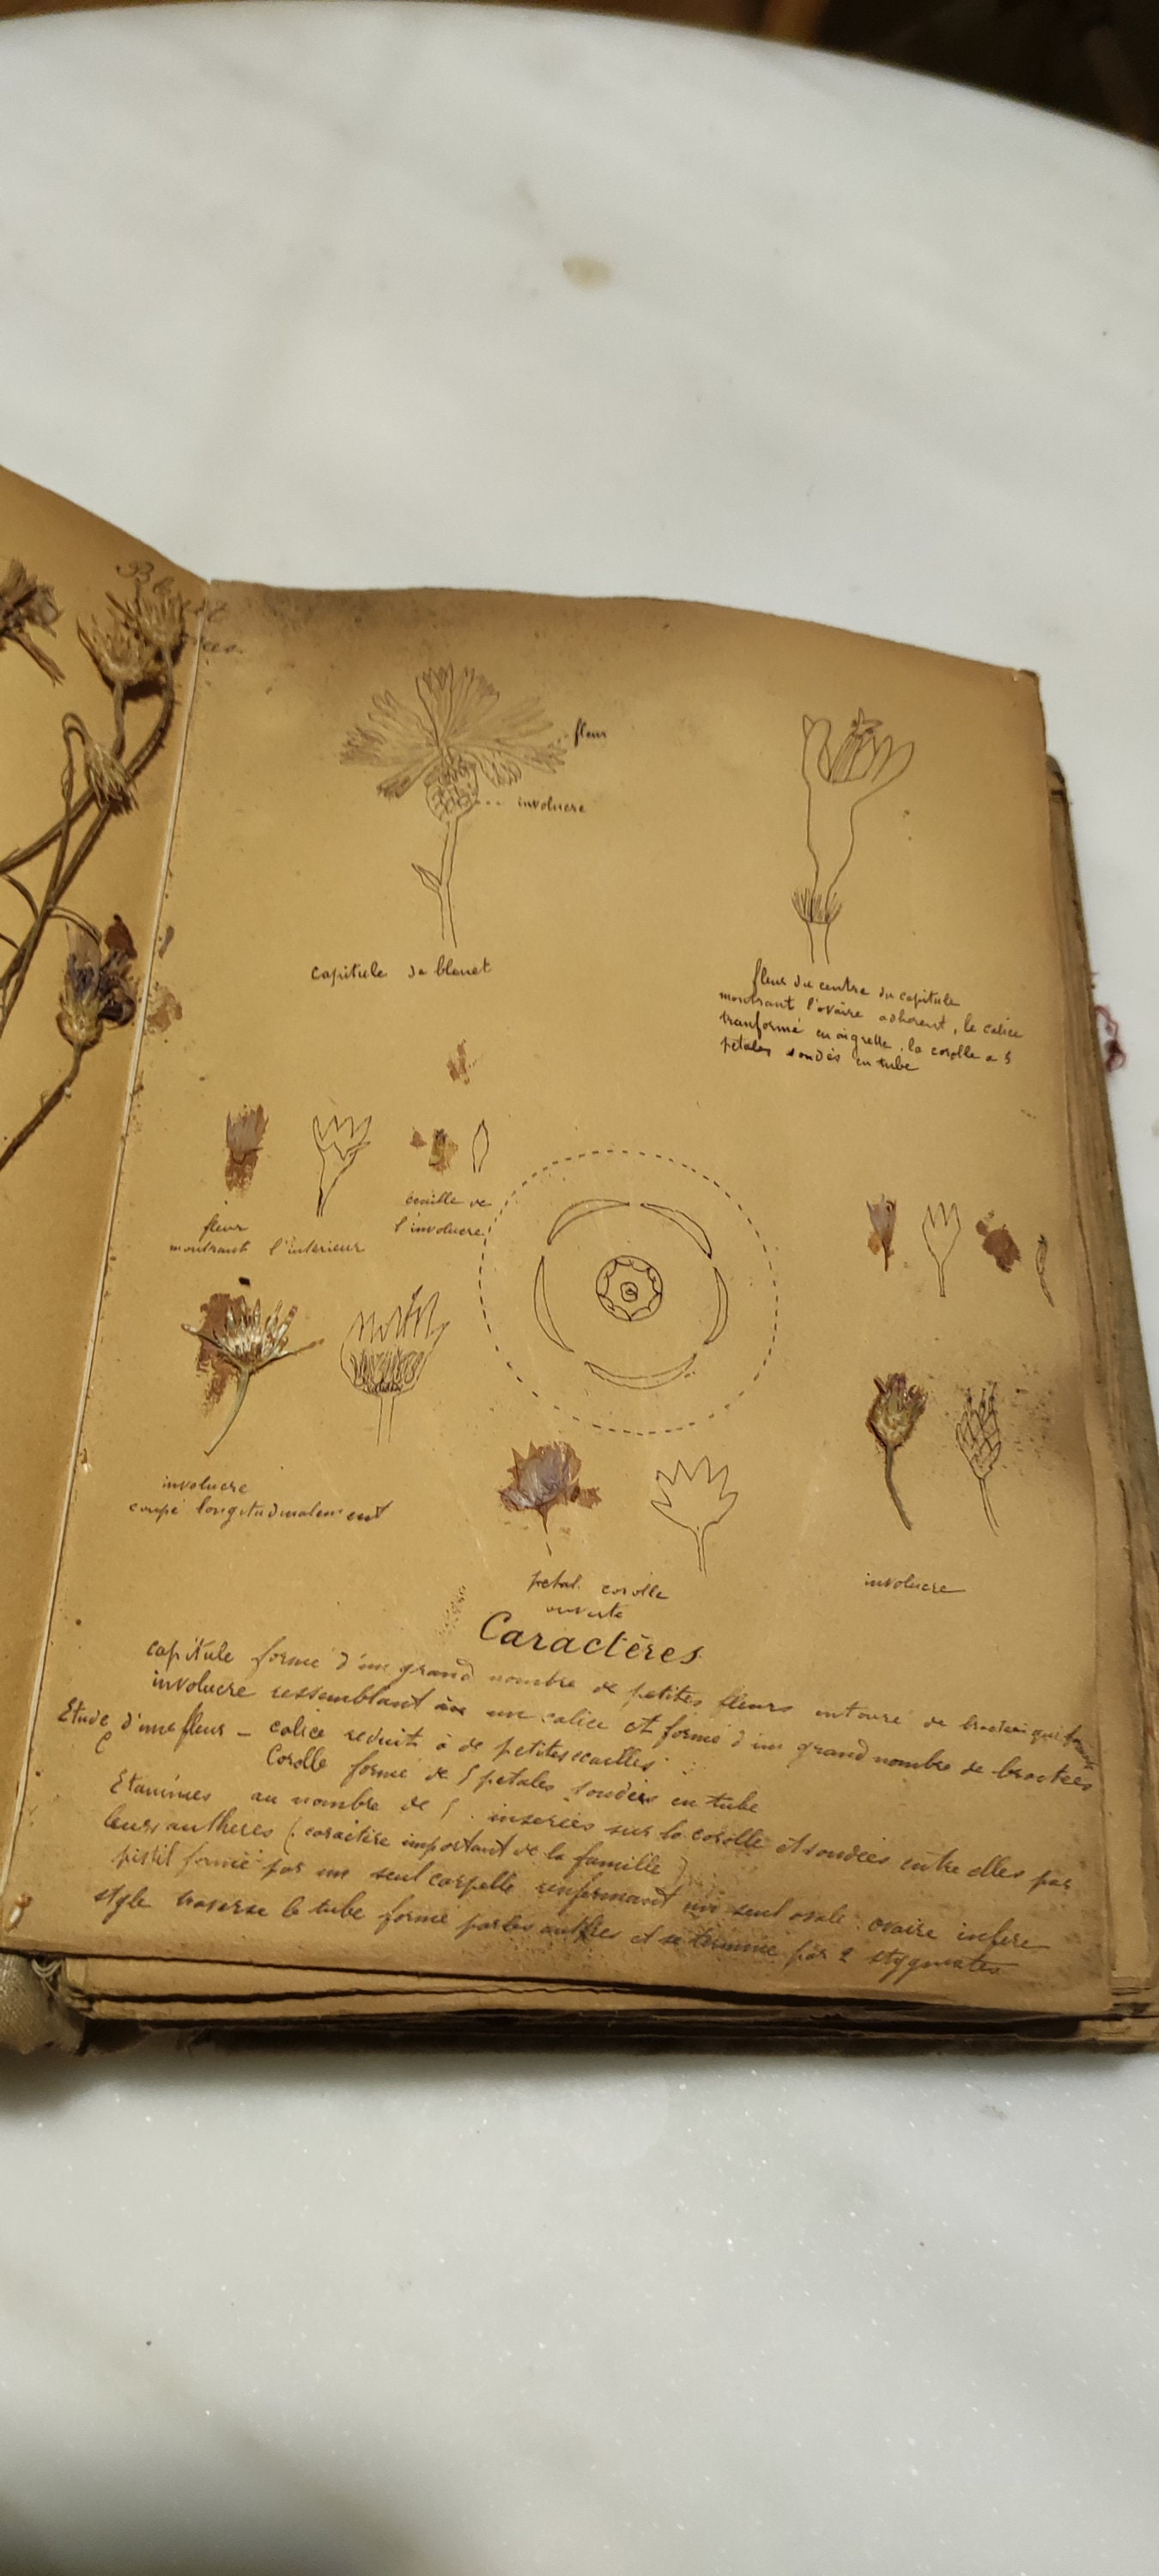 fleur
involucre
capitule de bleuet
fleur du centre du capitule
montrant l'ovaire adhérent, le calice
tranformé en aigrette, la corolle a 5
pétales soudés en tube
fleur
montrant l'intérieur
écaille de
l'involucre
involucre
coupé longitudinalement
petal. corolle
ouverte
involucre
Caractères
capitule formé d'un grand nombre de petites fleurs entouré de bractées qui forment
involucre ressemblant à un calice et formé d'un grand nombre de bractées
Etude d'une fleur _ calice réduit à de petites ecailles
Corolle formé de 5 pétales soudées en tube
Etamines au nombre de 5. inserées sur la corolle et soudées entre elles par
leurs anthères (caractère important de la famille)
pistil formé par un seul carpelle renfermant un seul ovule. ovaire infère
style traverse le tube formé par les anthères et se termine par 2 stygmates